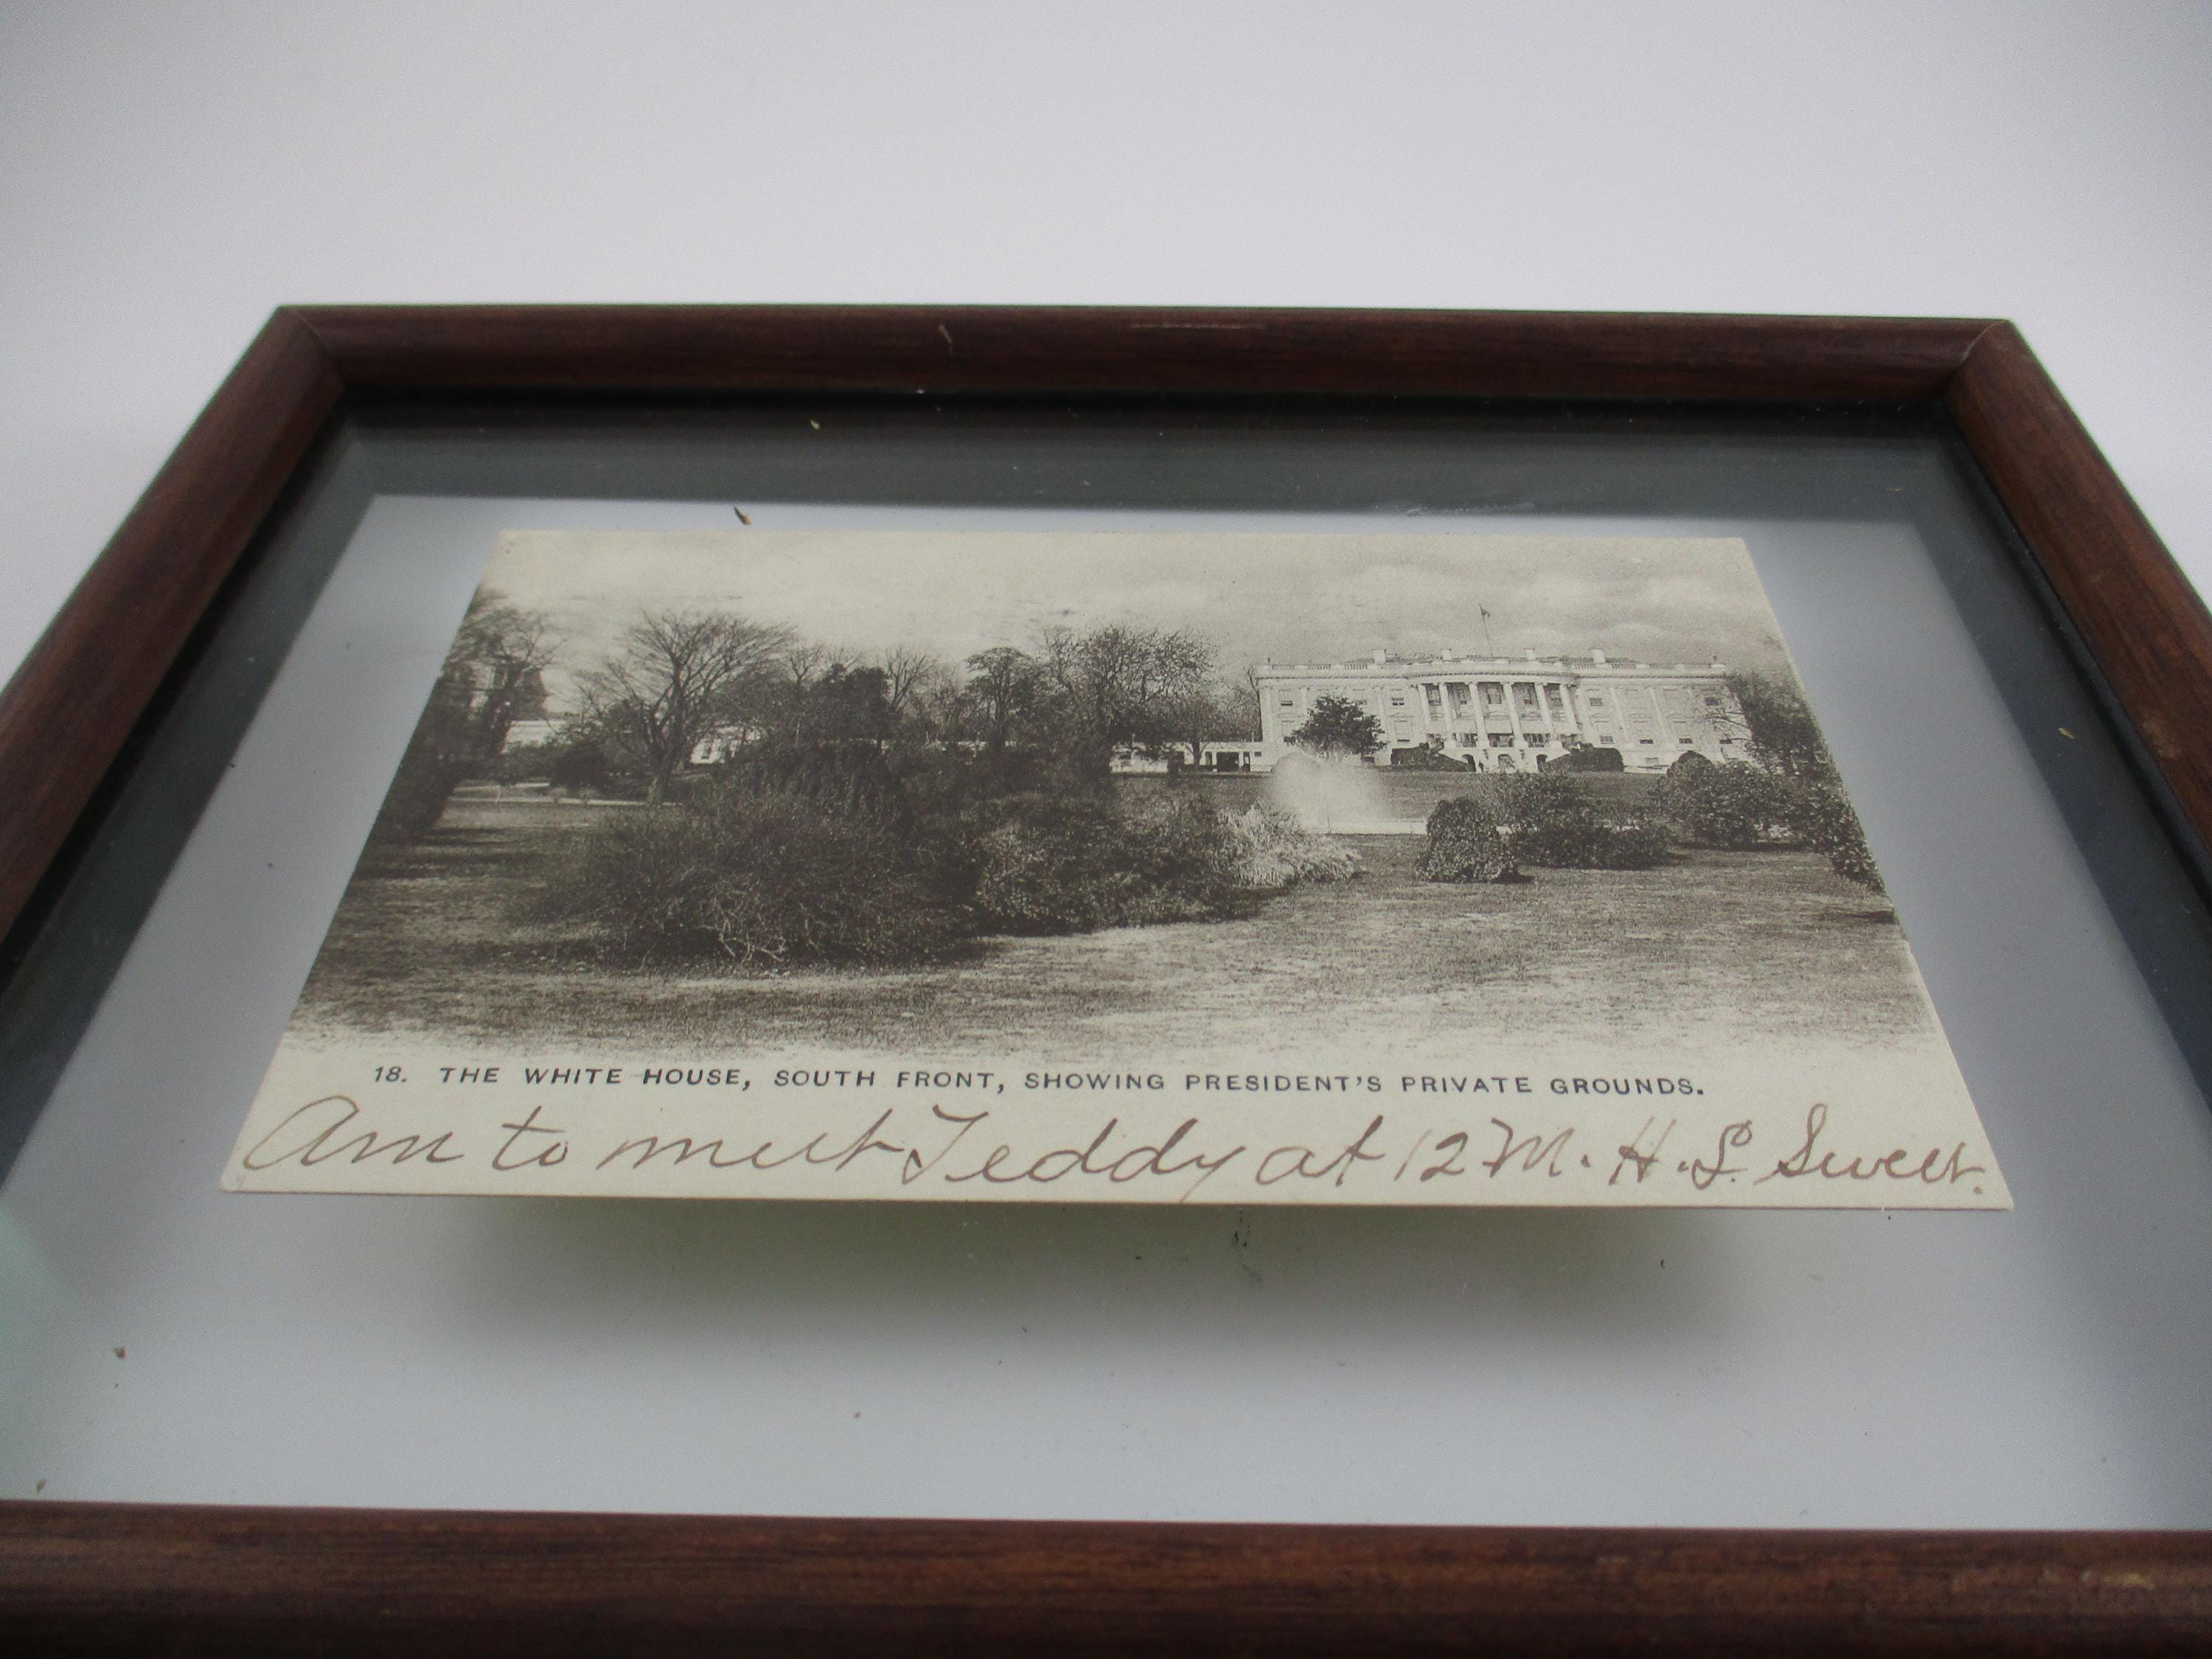 18. THE WHITE HOUSE, SOUTH FRONT, SHOWING PRESIDENT'S PRIVATE GROUNDS.
Am to meet Teddy at 12 M. H. L. Sweet.